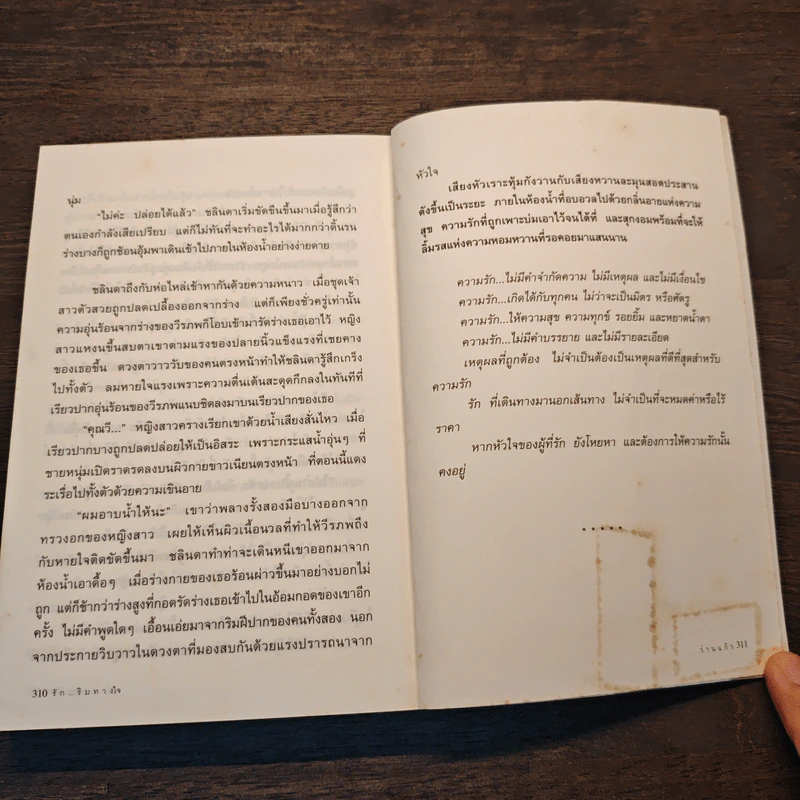 นุ่ม
“ไม่ค่ะ ปล่อยได้แล้ว” ชลินดาเริ่มขัดขืนขึ้นมาเมื่อรู้สึกว่า
ตนเองกำลังเสียเปรียบ แต่ก็ไม่ทันที่จะทำอะไรได้มากกว่าดิ้นรน
ร่างบางก็ถูกช้อนอุ้มพาเดินเข้าไปภายในห้องน้ำอย่างง่ายดาย
ชลินดาถึงกับห่อไหล่เข้าหากันด้วยความหนาว เมื่อชุดเจ้า
สาวตัวสวยถูกปลดเปลื้องออกจากร่าง แต่ก็เพียงชั่วครู่เท่านั้น
ความอุ่นร้อนจากร่างของวีรภพก็โอบเข้ามารัดร่างเธอเอาไว้ หญิง
สาวแหงนขึ้นสบตาเขาตามแรงของปลายนิ้วแข็งแรงที่เชยคาง
ของเธอขึ้น ดวงตาวาววับของคนตรงหน้าทำให้ชลินดารู้สึกเกร็ง
ไปทั้งตัว ลมหายใจแรงเพราะความตื่นเต้นสะดุดกึกลงในทันทีที่
เรียวปากอุ่นร้อนของวีรภพแนบชิดลงมาบนเรียวปากของเธอ
“คุณวี...” หญิงสาวครางเรียกเขาด้วยน้ำเสียงสั่นไหว เมื่อ
เรียวปากบางถูกปลดปล่อยให้เป็นอิสระ เพราะกระแสน้ำอุ่นๆ ที่
ชายหนุ่มเปิดราดรดลงบนผิวกายขาวเนียนตรงหน้า ที่ตอนนี้แดง
ระเรื่อไปทั้งตัวด้วยความเขินอาย
“ผมอาบน้ำให้นะ” เขาว่าพลางรั้งสองมือบางออกจาก
ทรวงอกของหญิงสาว เผยให้เห็นผิวเนื้อนวลที่ทำให้วีรภพถึง
กับหายใจติดขัดขึ้นมา ชลินดาทำท่าจะเดินหนีเขาออกมาจาก
ห้องน้ำเอาดื้อๆ เมื่อร่างกายของเธอร้อนผ่าวขึ้นมาอย่างบอกไม่
ถูก แต่ก็ช้ากว่าร่างสูงที่กอดรัดร่างเธอเข้าไปในอ้อมกอดของเขาอีก
ครั้ง ไม่มีคำพูดใดๆ เอื้อนเอ่ยมาจากริมฝีปากของคนทั้งสอง นอก
จากประกายวิบวาวในดวงตาที่มองสบกันด้วยแรงปรารถนาจาก
310 รัก...ริมทางใจ
หัวใจ
เสียงหัวเราะทุ้มกังวานกับเสียงหวานละมุนสอดประสาน
ดังขึ้นเป็นระยะ ภายในห้องน้ำที่อบอวลไปด้วยกลิ่นอายแห่งความ
สุข ความรักที่ถูกเพาะบ่มเอาไว้จนได้ที่ และสุกงอมพร้อมที่จะให้
ลิ้มรสแห่งความหอมหวานที่รอคอยมาแสนนาน
ความรัก...ไม่มีคำจำกัดความ ไม่มีเหตุผล และไม่มีเงื่อนไข
ความรัก...เกิดได้กับทุกคน ไม่ว่าจะเป็นมิตร หรือศัตรู
ความรัก...ให้ความสุข ความทุกข์ รอยยิ้ม และหยาดน้ำตา
ความรัก...ไม่มีคำบรรยาย และไม่มีรายละเอียด
เหตุผลที่ถูกต้อง ไม่จำเป็นต้องเป็นเหตุผลที่ดีที่สุดสำหรับ
ความรัก
รัก ที่เดินทางมานอกเส้นทาง ไม่จำเป็นที่จะหมดค่าหรือไร้
ราคา
หากหัวใจของผู้ที่รัก ยังโหยหา และต้องการให้ความรักนั้น
คงอยู่
.....
ร่านแก้ว 311